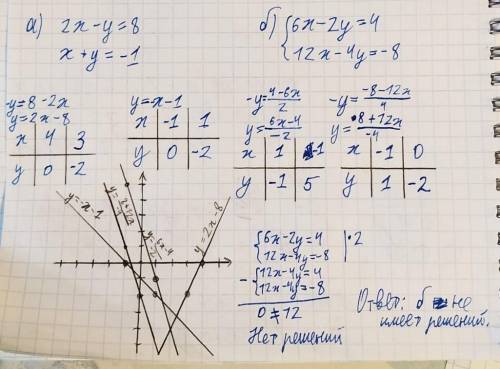 а) 2x-y=8
x+y=-1
б) {6x-2y=4
{12x-4y=-8
-y=8-2x
y=2x-8
x | 4 | 3
y | 0 | -2
y=-x-1
x | -1 | 1
y | 0 | -2
-y=4-6x/2
y=6x-4/-2
x | 1 | -1
y | -1 | 5
-y=-8-12x/4
y=8+12x/-4
x | -1 | 0
y | 1 | -2
y=-x-1
y=2x-8
{6x-2y=4 |·2
{12x-4y=-8
-{12x-4y=4
{12x-4y=-8
0≠12
Нет решений
Ответ: б не
имеет решений.